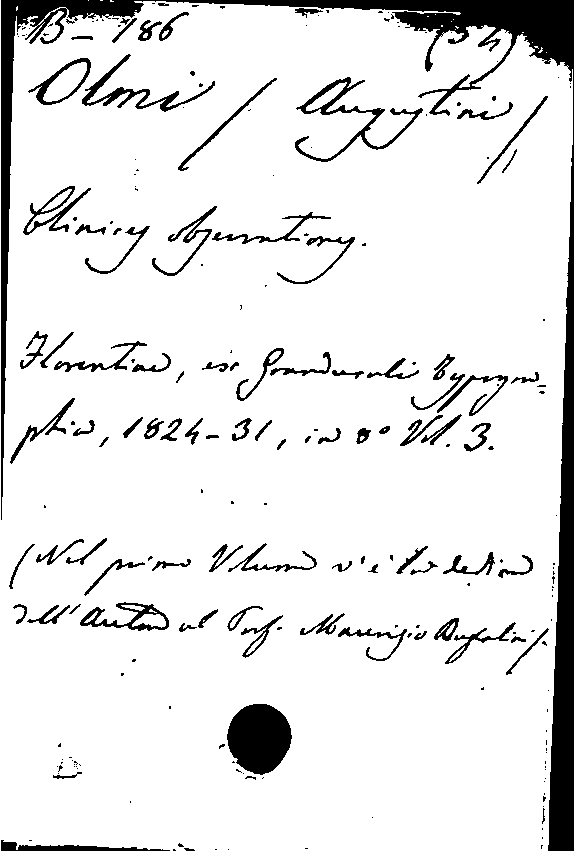 B - 186 (34)
Olmi / Augustini /
Clinices observationes.
Florentiae, ex Granducali Typogra=
phia, 1824-31, in 8° Vol. 3.
(Nel primo Volume v'è la dedica
dell'Autore al Prof. Maurizio Bufalini).